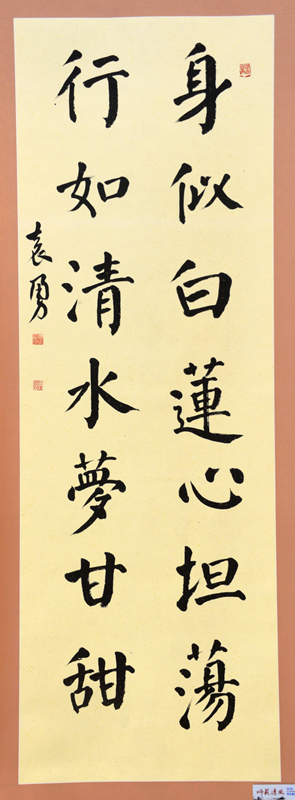 身似白蓮心坦蕩
行如清水夢甘甜
袁勇